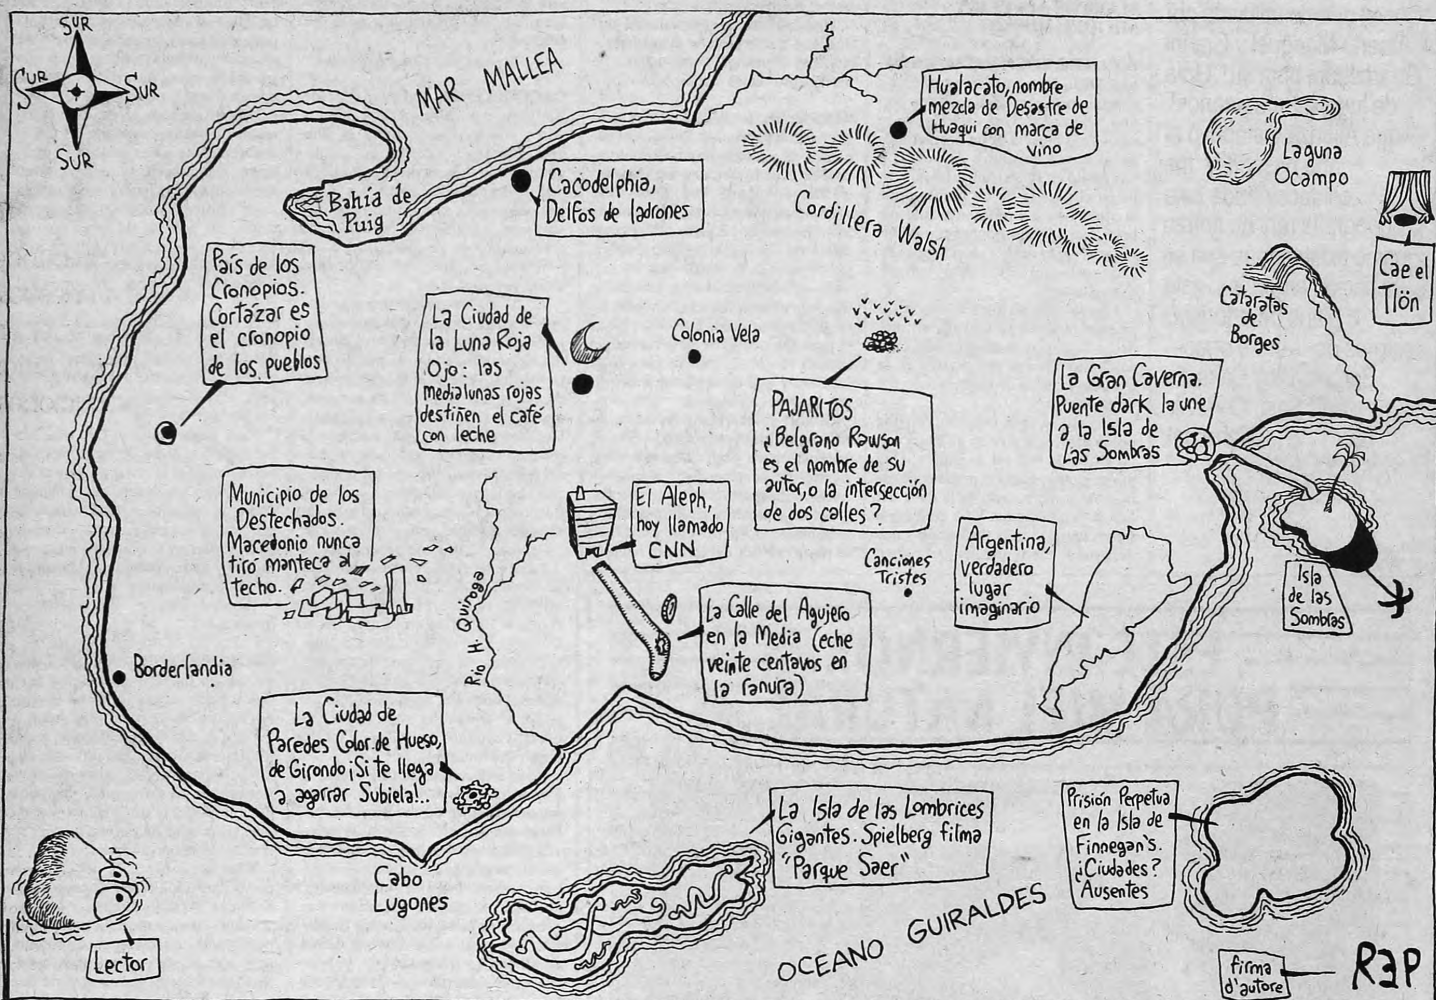 SUR
SUR
SUR
SUR
MAR MALLEA
Hualacato, nombre
mezcla de Desastre de
Huaqui con marca de
vino
Laguna
Ocampo
Bahía de
Puig
Cacodelphia,
Delfos de ladrones
Cordillera Walsh
Cae el
Tlön
País de los
Cronopios.
Cortázar es
el cronopio
de los pueblos
La Ciudad de
la Luna Roja
Ojo: las
medialunas rojas
destiñen el café
con leche
Colonia Vela
Cataratas
de
Borges
PAJARITOS
¿Belgrano Rawson
es el nombre de su
autor, o la intersección
de dos calles?
La Gran Caverna.
Puente dark la une
a la Isla de
Las Sombras
Municipio de los
Destechados.
Macedonio nunca
tiró manteca al
techo.
El Aleph,
hoy llamado
CNN
Canciones
Tristes
Argentina,
verdadero
lugar
imaginario
Isla
de las
Sombras
Río H. Quiroga
La Calle del Agujero
en la Media (eche
veinte centavos en
la ranura)
Borderlandia
La Ciudad de
Paredes Color de Hueso,
de Girondo ¡Si te llega
a agarrar Subiela!..
La Isla de las Lombrices
Gigantes. Spielberg filma
"Parque Saer"
Prisión Perpetua
en la Isla de
Finnegan's.
¿Ciudades?
Ausentes
Cabo
Lugones
OCEANO GUIRALDES
Lector
firma
d'autore
REP